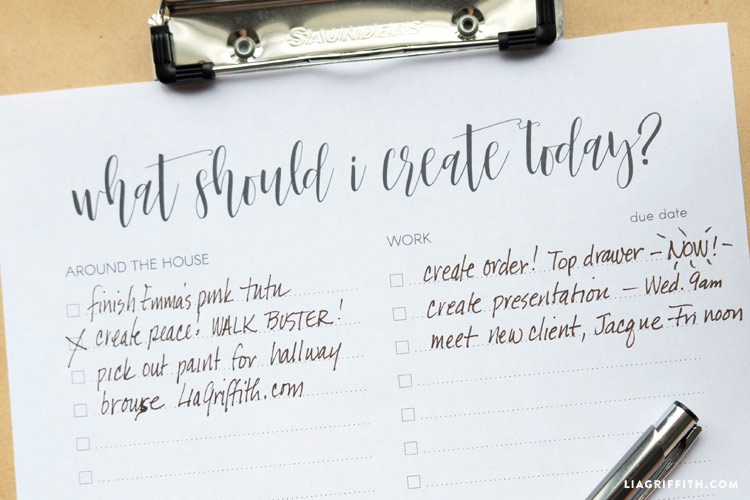 SAUNDERS
what should i create today?
AROUND THE HOUSE
finish Emma's pink tutu
create peace! WALK BUSTER!
pick out paint for hallway
browse LiaGriffith.com
WORK
due date
create order! Top drawer - NOW! -
create presentation - Wed. 9am
meet new client, Jacque Fri noon
LIAGRIFFITH.COM